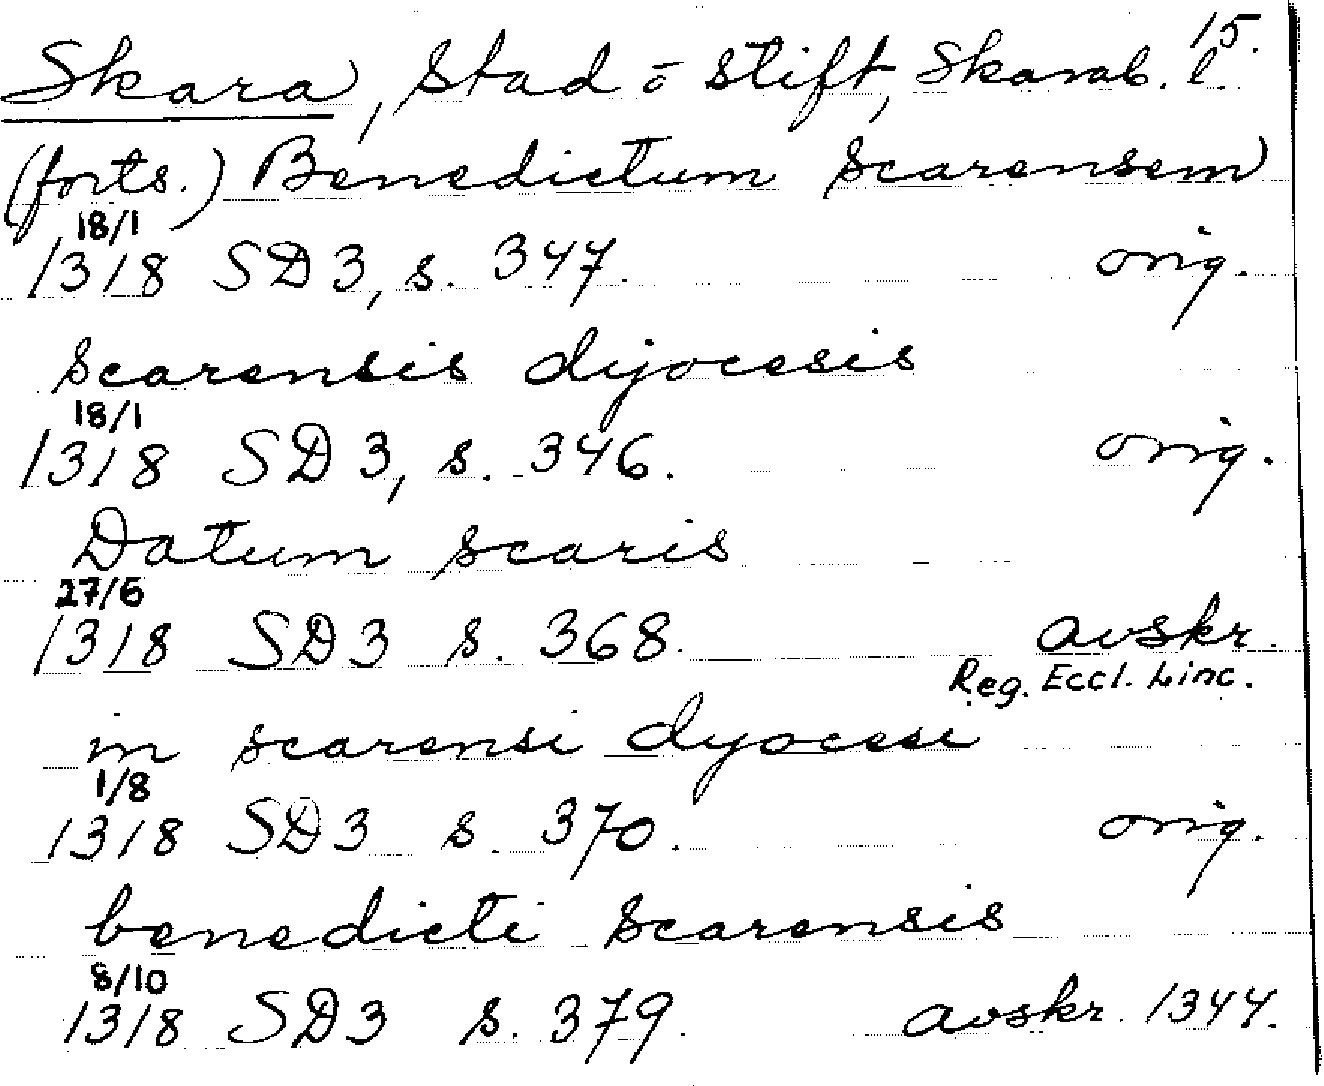 15.
Skara, stad o stift, Skarab. l.
(forts.) Benedictum scarensem
18/1
1318 SD3, s. 347. orig.
scarensis dyocesis
18/1
1318 SD3, s. 346. orig.
Datum scaris
27/6
1318 SD3 s. 368. avskr.
Reg. Eccl. Linc.
in scarensi dyocesi
1/8
1318 SD3 s. 370. orig.
benedicti scarensis
8/10
1318 SD3 s. 379. avskr. 1344.